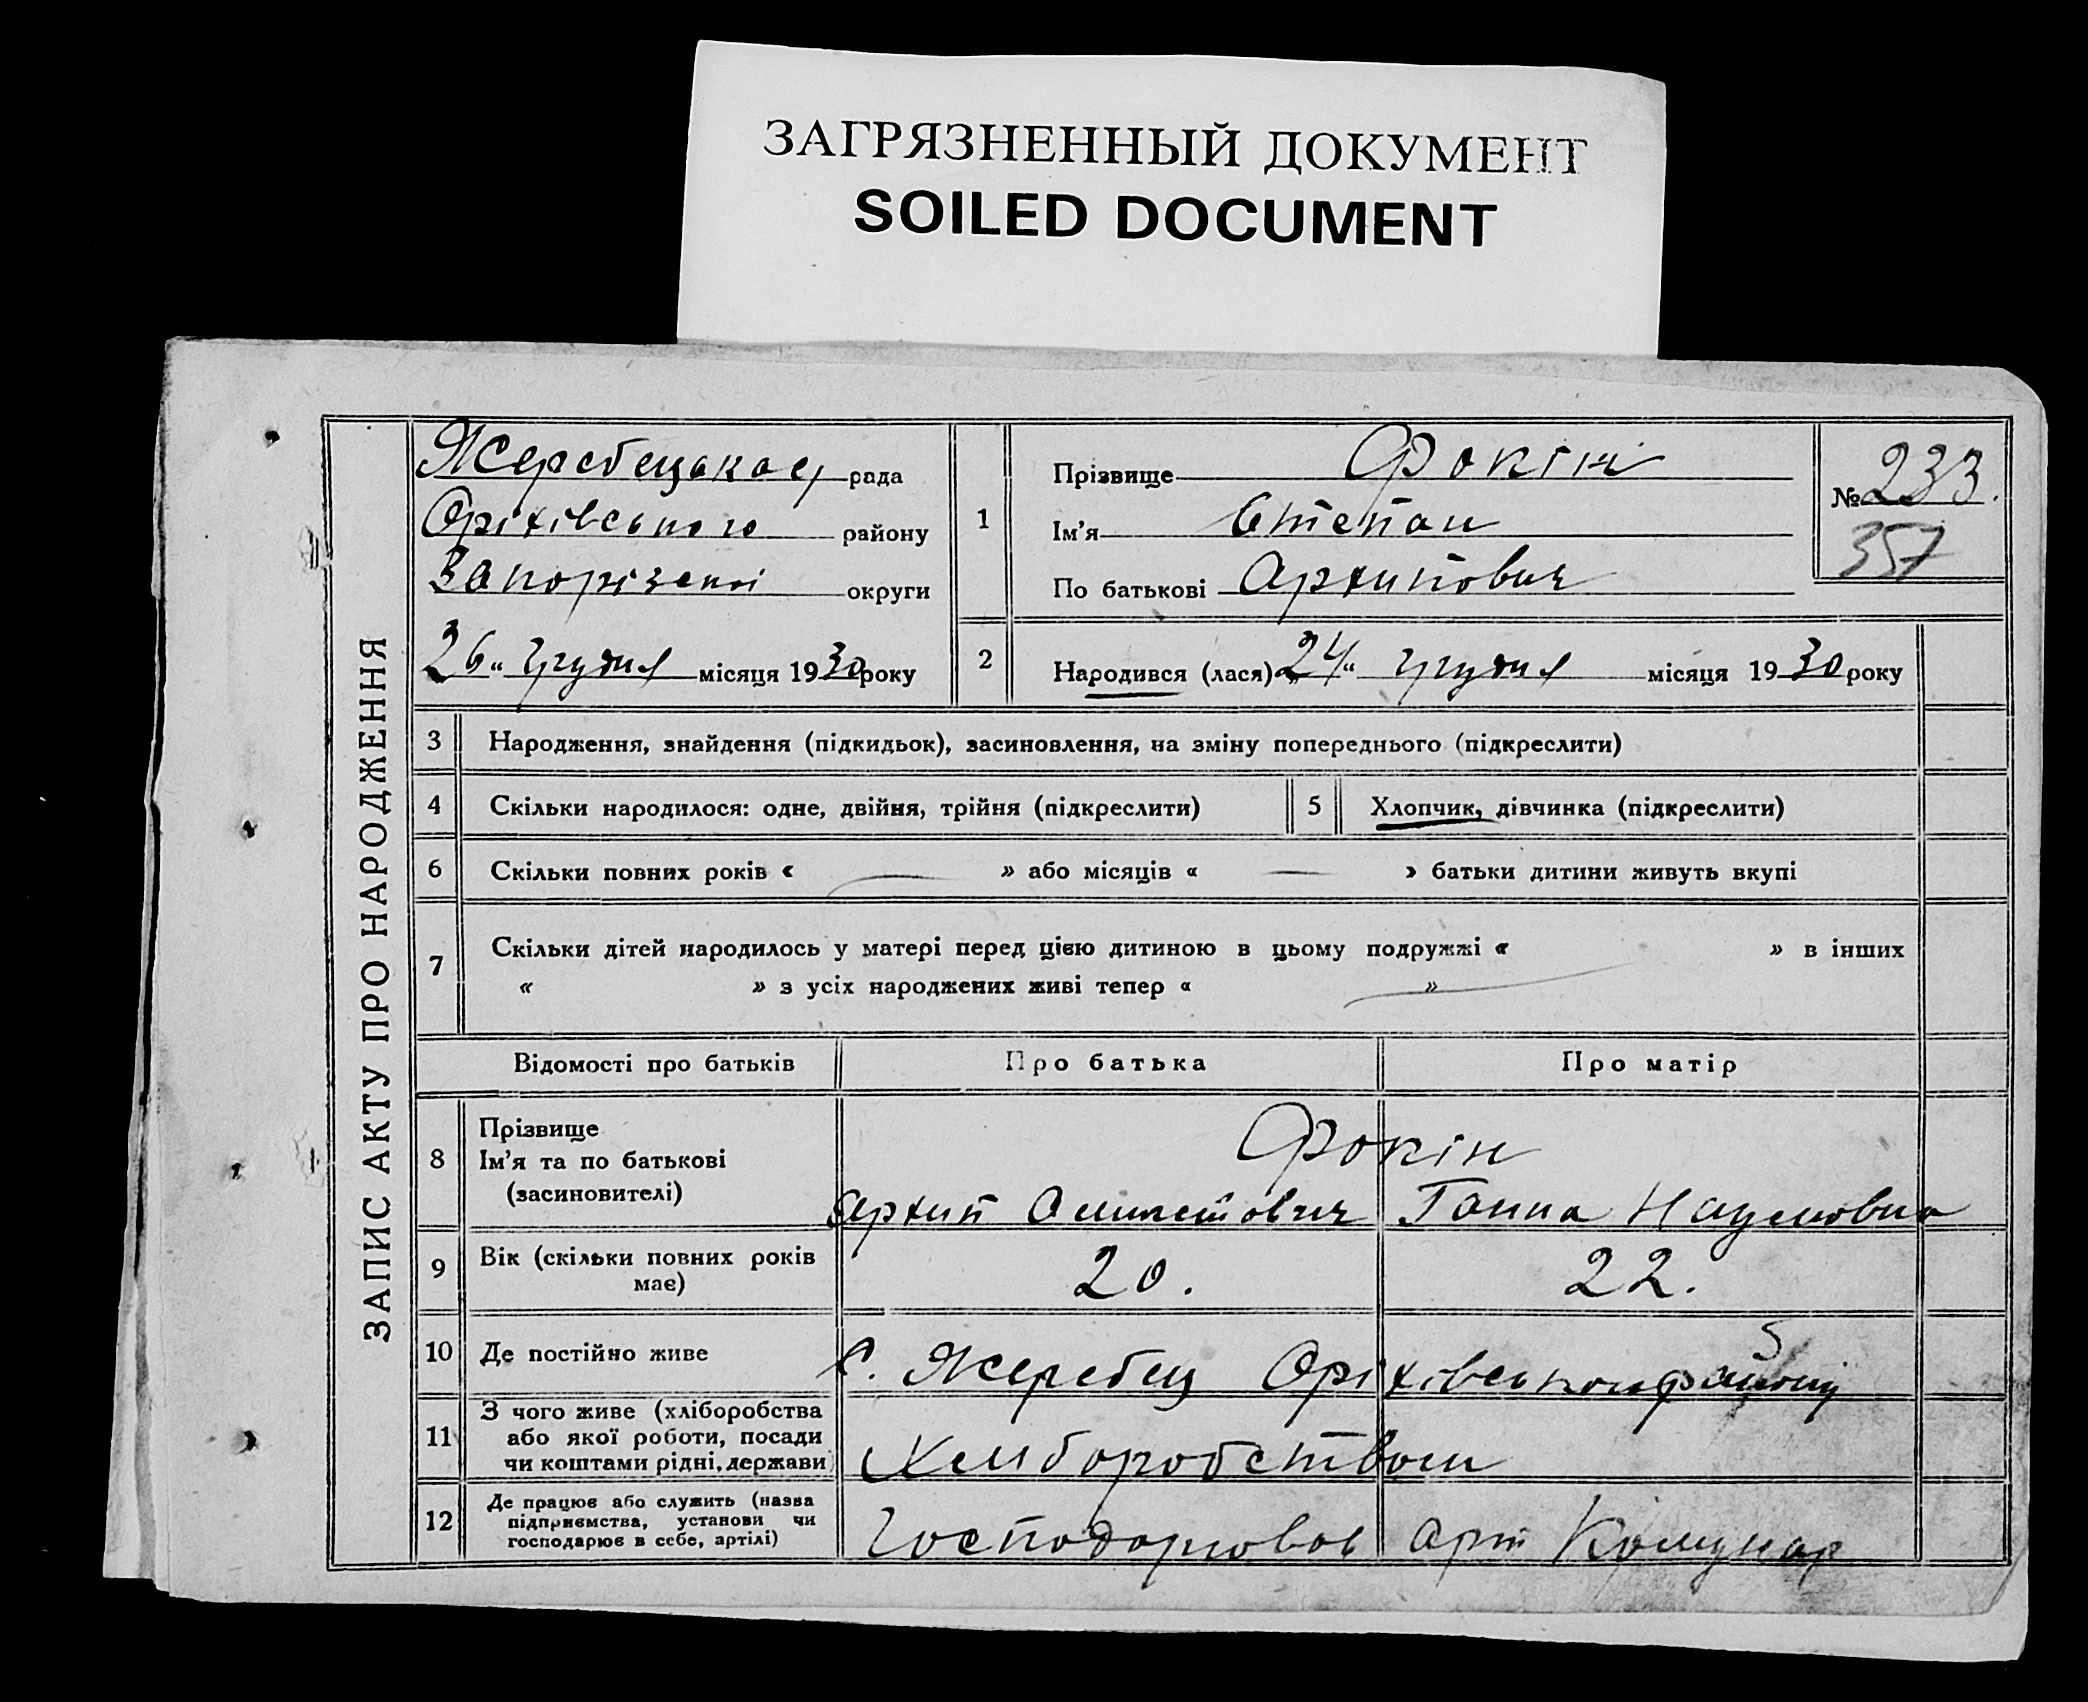 ЗАГРЯЗНЕННЫЙ ДОКУМЕНТ
SOILED DOCUMENT
ЗАПИС АКТУ ПРО НАРОДЖЕННЯ
Жеребецька рада
Оріхівського району
Запорізької округи
26 грудня місяця 1930 року
1
Прізвище Фокін
Ім'я Степан
По батькові Архипович
№ 233.
357
2 Народився (лася) „24“ грудня місяця 1930 року
3 Народження, знайдення (підкидьок), засиновлення, на зміну попереднього (підкреслити)
4 Скільки народилося: одне, двійня, трійня (підкреслити)
5 Хлопчик, дівчинка (підкреслити)
6 Скільки повних років « — » або місяців « — » батьки дитини живуть вкупі
7 Скільки дітей народилось у матері перед цією дитиною в цьому подружжі « » в інших
« » з усіх народжених живі тепер « »
Відомості про батьків Про батька Про матір
8 Прізвище
Ім'я та по батькові
(засиновителі)
Фокін
Архип Ганна Наумовна
9 Вік (скільки повних років
має)
20. 22.
10 Де постійно живе
с. Жеребец Оріхівського району
11 З чого живе (хліборобства
або якої роботи, посади
чи коштами рідні, держави
Хліборобством
12 Де працює або служить (назва
підприємства, установи чи
господарює в себе, артілі)
Господарював арт Комунар